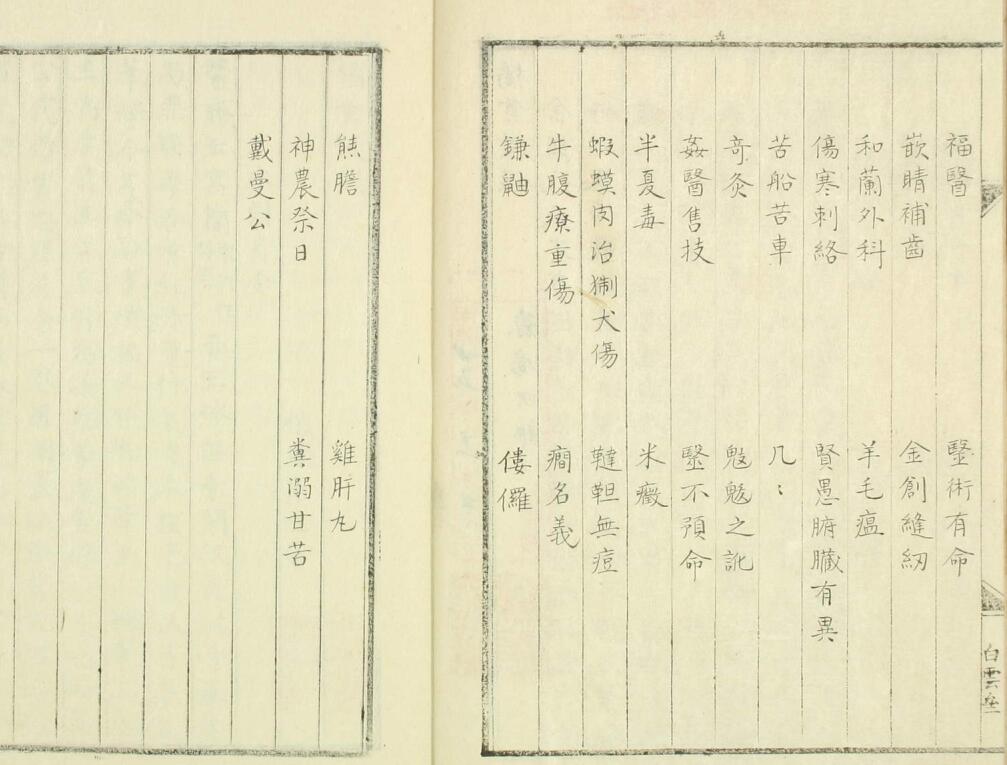 福醫 毉術有命
嵌睛補齒 金創縫紉
和蘭外科 羊毛瘟
傷寒刺絡 賢愚腑臟有異
苦船苦車 几:
奇灸 之訛
姦醫售技 毉不預命
半夏毒 米癥
蝦蟆肉治猘犬傷 韃靼無痘
牛腹療重傷 癎名義
鎌鼬 僂儸
熊膽 雞肝丸
神農祭日 糞溺甘苦
戴曼公
白雲